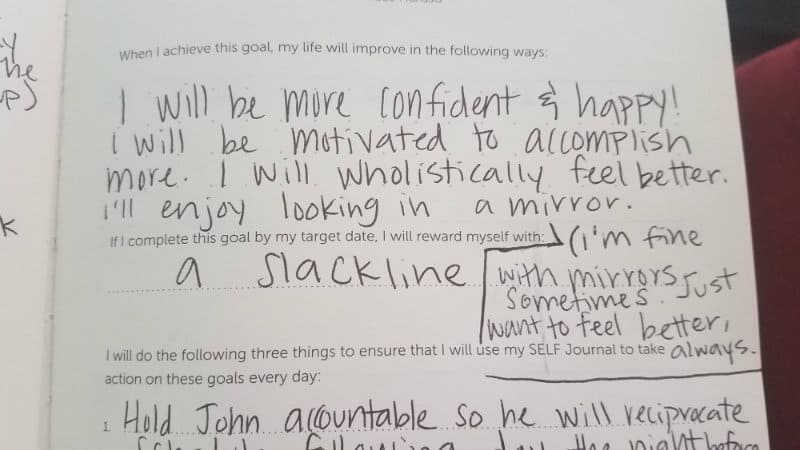 When I achieve this goal, my life will improve in the following ways:
I will be more confident & happy!
I will be motivated to accomplish
more. I will wholistically feel better.
I'll enjoy looking in a mirror.
If I complete this goal by my target date, I will reward myself with:
a slackline
(I'm fine
with mirrors, Just
Sometimes. I
want to feel better,
always.
I will do the following three things to ensure that I will use my SELF Journal to take
action on these goals every day:
1. Hold John accountable so he will reciprocate
day the night before
the
up)
k